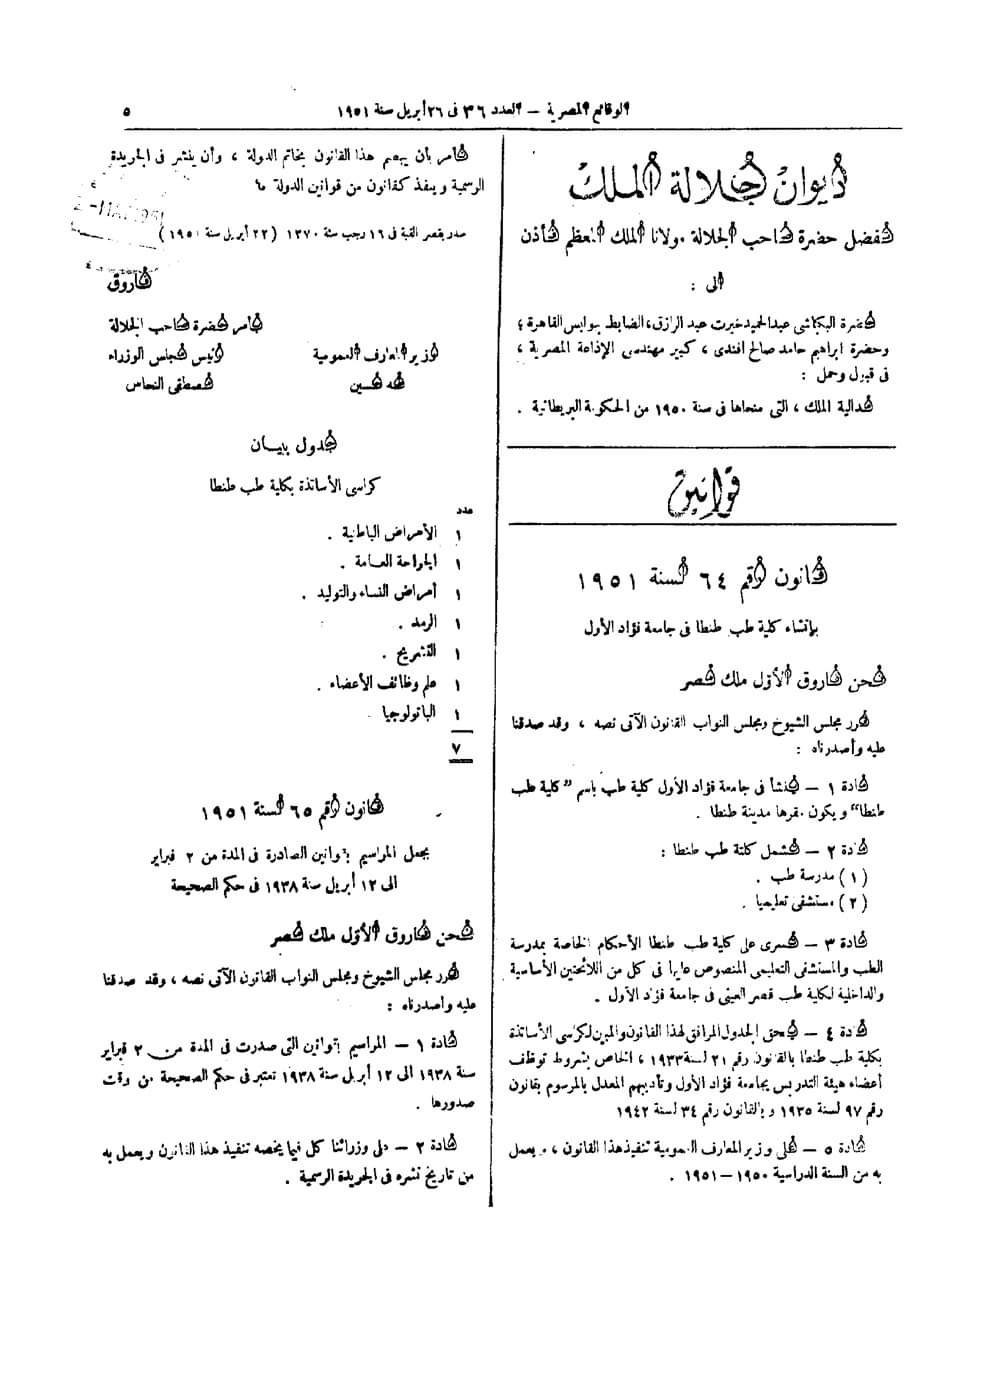 الوقائع المصرية – العدد ٣٦ فى ٢٦ أبريل سنة ١٩٥١
٥
ديوان جلالة الملك
تفضل حضرة صاحب الجلالة مولانا الملك المعظم فأذن
الى :
حضرة البكباشى عبدالحميد خيرت عبد الرازق، الضابط ببوليس القاهرة ؛
وحضرة ابراهيم حامد صالح افندى ، كبير مهندسى الإذاعة المصرية ،
فى قبول وحمل :
ميدالية الملك ، التى منحاها فى سنة ١٩٥٠ من الحكومة البريطانية .
قوانين
قانون رقم ٦٤ لسنة ١٩٥١
بإنشاء كلية طب طنطا فى جامعة فؤاد الأول
نحن فاروق الأول ملك مصر
قرر مجلس الشيوخ ومجلس النواب القانون الآتى نصه ، وقد صدقنا
عليه وأصدرناه :
مادة ١ – تنشأ فى جامعة فؤاد الأول كلية طب باسم "كلية طب
طنطا" ويكون مقرها مدينة طنطا .
مادة ٢ – تشمل كلية طب طنطا :
(١) مدرسة طب .
(٢) مستشفى تعليميا .
مادة ٣ – تسرى على كلية طب طنطا الأحكام الخاصة بمدرسة
الطب والمستشفى التعليمى المنصوص عليها فى كل من اللائحتين الأساسية
والداخلية لكلية طب قصر العينى فى جامعة فؤاد الأول .
مادة ٤ – يلحق الجدول المرافق لهذا القانون والمبين لكراسى الأساتذة
بكلية طب طنطا بالقانون رقم ٢١ لسنة ١٩٣٣ ، الخاص بشروط توظف
أعضاء هيئة التدريس بجامعة فؤاد الأول وتأديبهم المعدل بالمرسوم بقانون
رقم ٩٧ لسنة ١٩٣٥ وبالقانون رقم ٣٤ لسنة ١٩٤٢
مادة ٥ – على وزير المعارف العمومية تنفيذ هذا القانون ، ويعمل
به من السنة الدراسية ١٩٥٠ – ١٩٥١ .
نأمر بأن يبصم هذا القانون بخاتم الدولة ، وأن ينشر فى الجريدة
الرسمية وينفذ كقانون من قوانين الدولة م
صدر بقصر القبة فى ١٦ رجب سنة ١٣٧٠ (٢٢ أبريل سنة ١٩٥١)
فاروق
بأمر حضرة صاحب الجلالة
وزير المعارف العمومية رئيس مجلس الوزراء
طه حسين مصطفى النحاس
جدول ببيان
كراسى الأساتذة بكلية طب طنطا
عدد
١ الأمراض الباطنية .
١ الجراحة العامة .
١ أمراض النساء والتوليد .
١ الرمد .
١ التشريح .
١ علم وظائف الأعضاء .
١ الباثولوجيا
٧
قانون رقم ٦٥ لسنة ١٩٥١
بجعل المراسيم بقوانين الصادرة فى المدة من ٢ فبراير
الى ١٢ أبريل سنة ١٩٣٨ فى حكم الصحيحة
نحن فاروق الأول ملك مصر
قرر مجلس الشيوخ ومجلس النواب القانون الآتى نصه ، وقد صدقنا
عليه وأصدرناه :
مادة ١ – المراسيم بقوانين التى صدرت فى المدة من ٢ فبراير
سنة ١٩٣٨ الى ١٢ أبريل سنة ١٩٣٨ تعتبر فى حكم الصحيحة من وقت
صدورها .
مادة ٢ – على وزرائنا كل فيما يخصه تنفيذ هذا القانون ويعمل به
من تاريخ نشره فى الجريدة الرسمية .